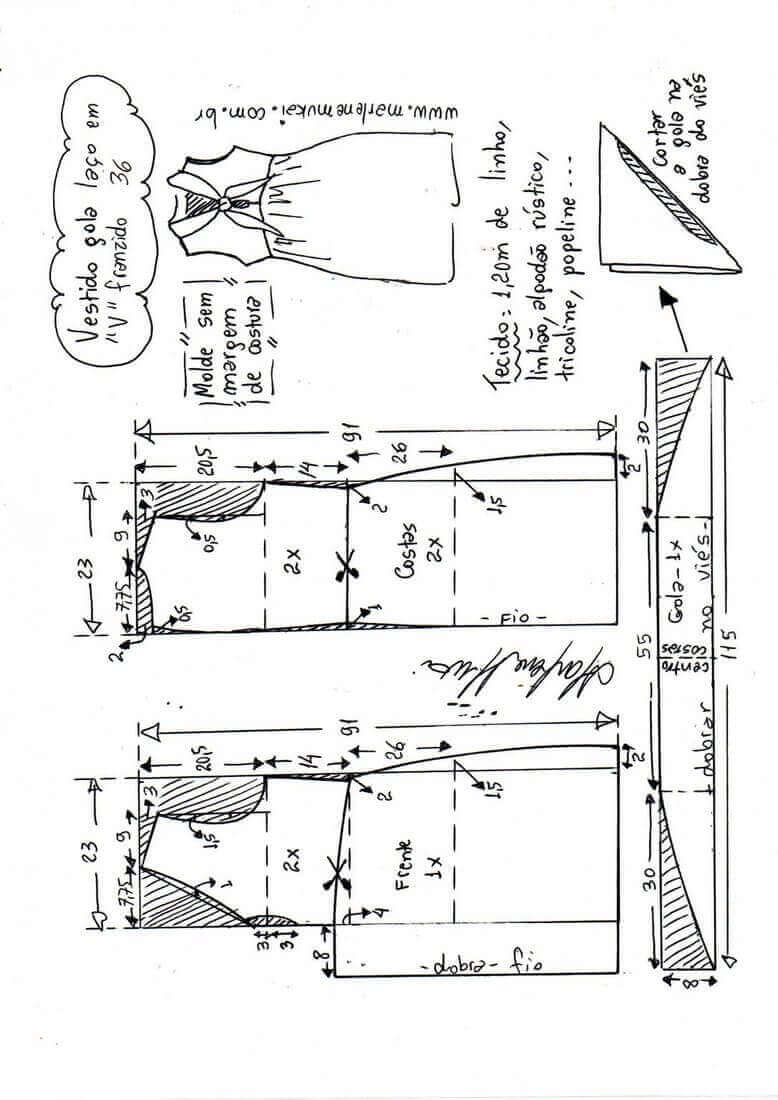 Vestido gola laço em
"V" franzido 36
www.marlenemukai.com.br
Molde sem
margem
de costura
Tecido = 1,20m de linho,
linhão, algodão rústico,
tricoline, popeline ---
cortar
a gola na
dobra do viés
23
7,75
9
3
2
0,5
0,5
20,5
14
26
91
2
1,5
2
1
2x
Costas
2x
- Fio -
23
7,75
9
3
1
1,5
20,5
14
26
91
2
1,5
2
3
3
4
8
2x
Frente
1x
dobra - fio
30
55
30
115
8
Gola - 1x
centro
costas
dobrar no viés